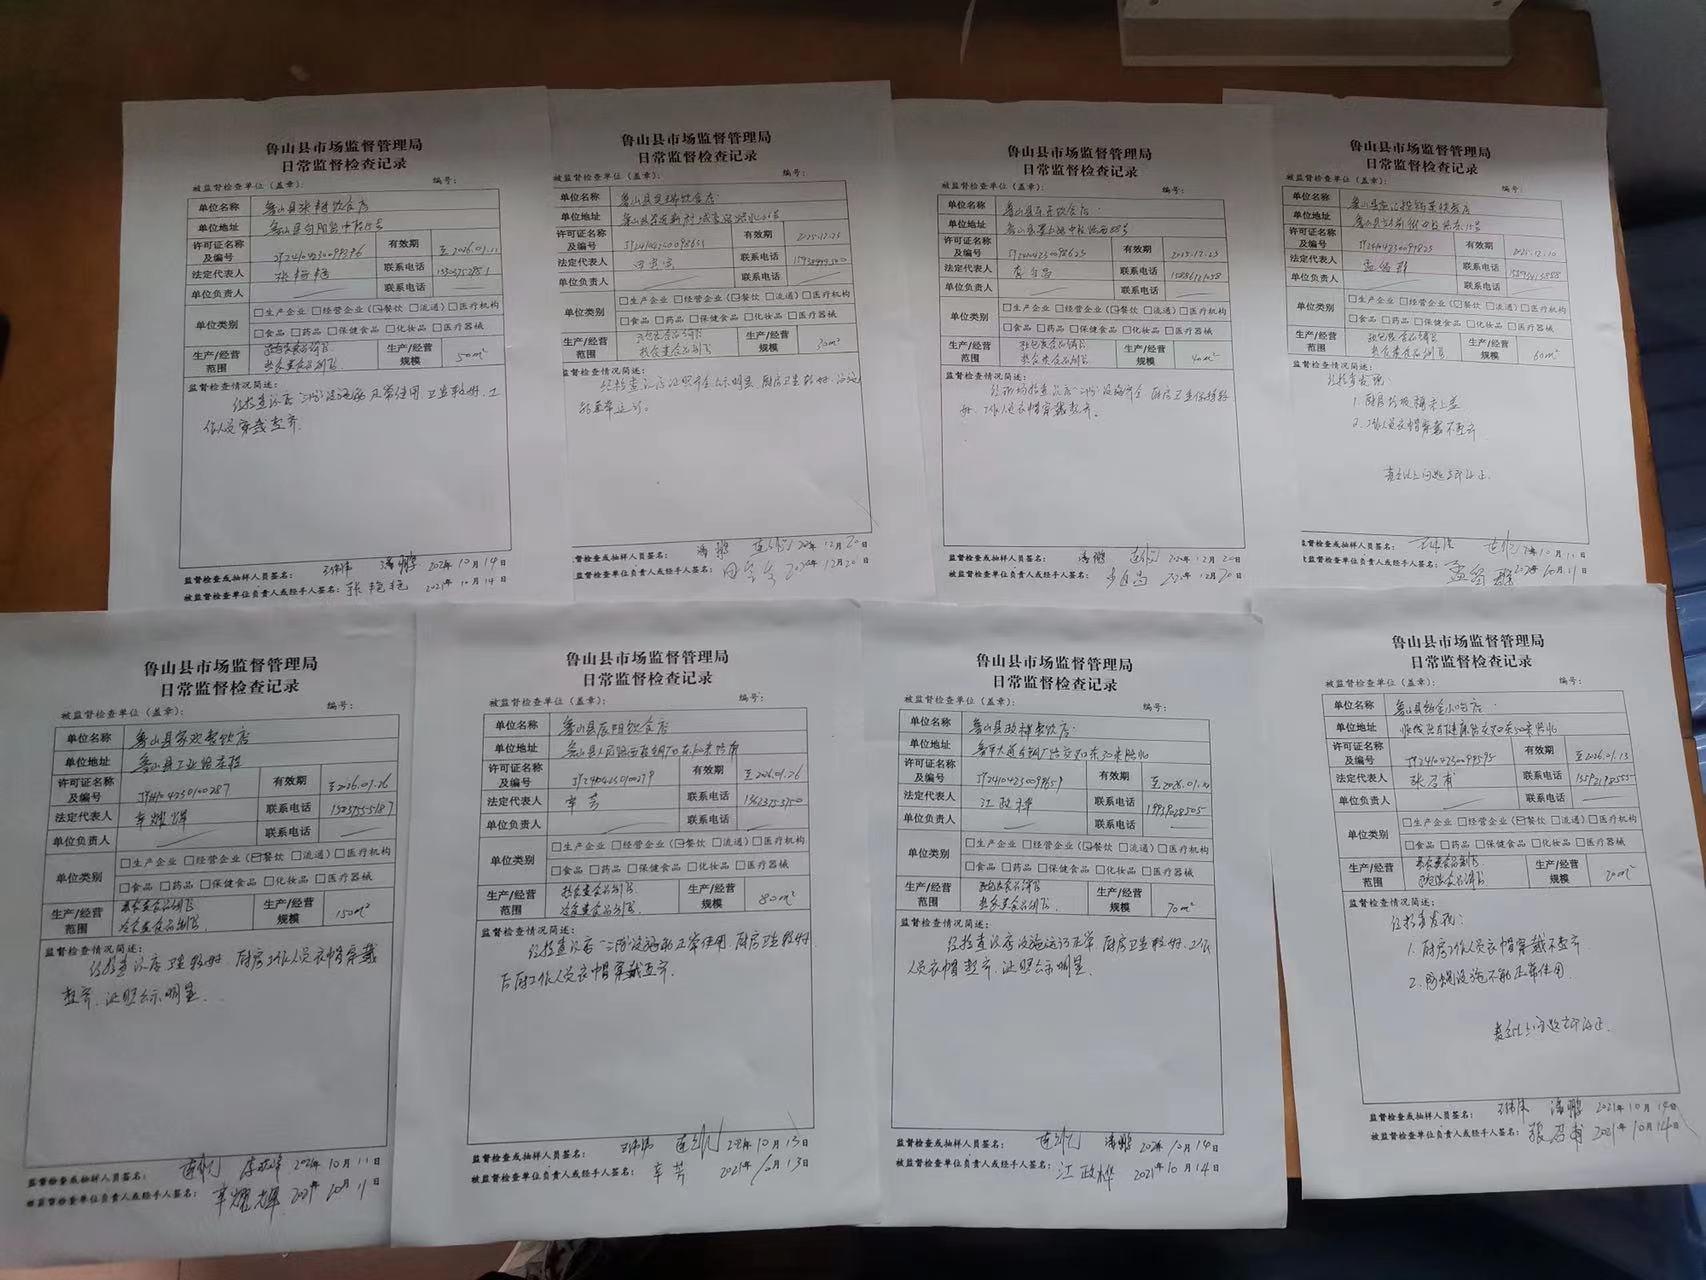 鲁山县市场监督管理局
日常监督检查记录
被监督检查单位（盖章）： 编号：
单位名称 鲁山县张艳饮食店
单位地址 鲁山县向阳路中段15号
许可证名称及编号 有效期 至2026.01.11
法定代表人 张艳艳 联系电话
单位负责人 联系电话
单位类别 □生产企业 □经营企业（☑餐饮 □流通）□医疗机构
□食品 □药品 □保健食品 □化妆品 □医疗器械
生产/经营范围 热食类食品制售 生产/经营规模 50m²
监督检查情况简述：
经检查该店"三防"设施能正常使用，卫生较好，工
作人员穿戴整齐。
监督检查或抽样人员签名： 王伟伟 潘鹏 2021年10月14日
被监督检查单位负责人或经手人签名：张艳艳 2021年10月14日
鲁山县市场监督管理局
日常监督检查记录
被监督检查单位（盖章）： 编号：
单位名称
单位地址
许可证名称及编号 JY24104230098633 有效期 2025.12.23
法定代表人 联系电话
单位负责人 联系电话
单位类别 □生产企业 □经营企业（☑餐饮 □流通）□医疗机构
□食品 □药品 □保健食品 □化妆品 □医疗器械
生产/经营范围 预包装食品销售 热食类食品制售 生产/经营规模 30m²
监督检查情况简述：
经检查该店证照齐全公示明显，厨房卫生较好，设施
能正常运行。
监督检查或抽样人员签名： 潘鹏 12月20日
被监督检查单位负责人或经手人签名： 12月20日
鲁山县市场监督管理局
日常监督检查记录
被监督检查单位（盖章）： 编号：
单位名称
单位地址
许可证名称及编号 JY24104230098625 有效期 2025.12.23
法定代表人 联系电话
单位负责人 联系电话
单位类别 □生产企业 □经营企业（☑餐饮 □流通）□医疗机构
□食品 □药品 □保健食品 □化妆品 □医疗器械
生产/经营范围 预包装食品销售 热食类食品制售 生产/经营规模 40m²
监督检查情况简述：
经现场检查该店"三防"设施齐全，厨房卫生保持较
好，工作人员衣帽穿戴整齐。
监督检查或抽样人员签名： 潘鹏 12月20日
被监督检查单位负责人或经手人签名： 12月20日
鲁山县市场监督管理局
日常监督检查记录
被监督检查单位（盖章）： 编号：
单位名称
单位地址
许可证名称及编号 有效期 2025.12.10
法定代表人 联系电话
单位负责人 联系电话
单位类别 □生产企业 □经营企业（☑餐饮 □流通）□医疗机构
□食品 □药品 □保健食品 □化妆品 □医疗器械
生产/经营范围 预包装食品销售 热食类食品制售 生产/经营规模 60m²
监督检查情况简述：
经检查发现：
1. 厨房垃圾桶未上盖
2. 工作人员衣帽穿戴不整齐
责令以上问题立即改正.
监督检查或抽样人员签名： 10月11日
被监督检查单位负责人或经手人签名： 10月11日
鲁山县市场监督管理局
日常监督检查记录
被监督检查单位（盖章）： 编号：
单位名称 鲁山县家欢餐饮店
单位地址
许可证名称及编号 JY24104230100287 有效期 至2026.01.26
法定代表人 辛耀辉 联系电话 15037555187
单位负责人 联系电话
单位类别 □生产企业 □经营企业（☑餐饮 □流通）□医疗机构
□食品 □药品 □保健食品 □化妆品 □医疗器械
生产/经营范围 热食类食品制售 冷食类食品制售 生产/经营规模 150m²
监督检查情况简述：
经检查该店卫生较好，厨房工作人员衣帽穿戴
整齐，证照公示明显。
监督检查或抽样人员签名： 2021年10月11日
被监督检查单位负责人或经手人签名： 辛耀辉 2021年10月11日
鲁山县市场监督管理局
日常监督检查记录
被监督检查单位（盖章）： 编号：
单位名称 鲁山县辰阳饮食店
单位地址
许可证名称及编号 JY24104230100279 有效期 至2026.01.26
法定代表人 辛芳 联系电话
单位负责人 联系电话
单位类别 □生产企业 □经营企业（☑餐饮 □流通）□医疗机构
□食品 □药品 □保健食品 □化妆品 □医疗器械
生产/经营范围 热食类食品制售 冷食类食品制售 生产/经营规模 80m²
监督检查情况简述：
经检查该店"三防"设施能正常使用，厨房卫生较好
后厨工作人员衣帽穿戴整齐。
监督检查或抽样人员签名： 王伟伟 2021年10月13日
被监督检查单位负责人或经手人签名： 辛芳 2021年10月13日
鲁山县市场监督管理局
日常监督检查记录
被监督检查单位（盖章）： 编号：
单位名称 鲁山县政祥餐饮店
单位地址
许可证名称及编号 JY24104230099859 有效期
法定代表人 联系电话 19939028505
单位负责人 联系电话
单位类别 □生产企业 □经营企业（☑餐饮 □流通）□医疗机构
□食品 □药品 □保健食品 □化妆品 □医疗器械
生产/经营范围 预包装食品销售 热食类食品制售 生产/经营规模 70m²
监督检查情况简述：
经检查该店设施运行正常，厨房卫生较好，工作
人员衣帽整齐，证照公示明显。
监督检查或抽样人员签名： 潘鹏 2021年10月14日
被监督检查单位负责人或经手人签名： 2021年10月14日
鲁山县市场监督管理局
日常监督检查记录
被监督检查单位（盖章）： 编号：
单位名称
单位地址
许可证名称及编号 JY24104230099595 有效期 至2026.01.13
法定代表人 张召甫 联系电话
单位负责人 联系电话
单位类别 □生产企业 □经营企业（☑餐饮 □流通）□医疗机构
□食品 □药品 □保健食品 □化妆品 □医疗器械
生产/经营范围 热食类食品制售 预包装食品销售 生产/经营规模 20m²
监督检查情况简述：
经检查发现：
1. 厨房工作人员衣帽穿戴不整齐
2. 防蝇设施不能正常使用
责令以上问题立即改正.
监督检查或抽样人员签名： 王伟伟 潘鹏 2021年10月14日
被监督检查单位负责人或经手人签名： 张召甫 2021年10月14日